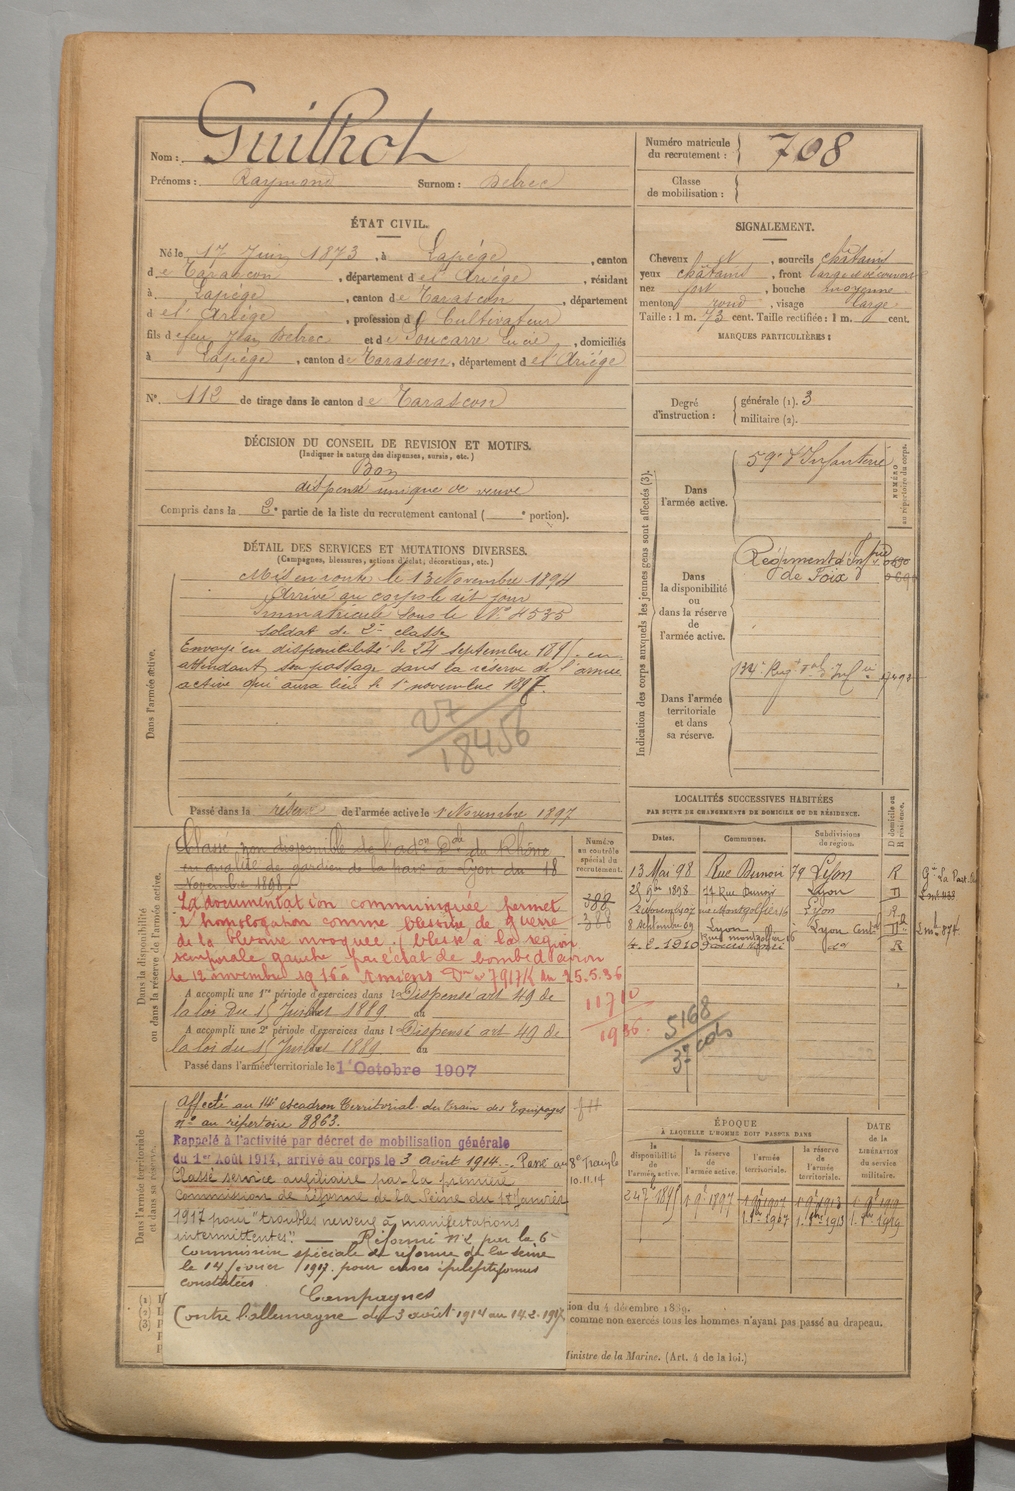 Nom : Guilhot
Prénoms : Raymond Surnom : Debrec
Numéro matricule du recrutement : 708
Classe de mobilisation :
ÉTAT CIVIL.
Né le 17 Juin 1873, à Lapège, canton
de Tarascon, département de l'Ariège, résidant
à Lapège, canton de Tarascon, département
de l'Ariège, profession de Cultivateur
fils de feu Jean Debrec et de Soucarre Lucie, domiciliés
à Lapège, canton de Tarascon, département de l'Ariège
N° 112 de tirage dans le canton de Tarascon
SIGNALEMENT.
Cheveux et, sourcils châtains
yeux châtains, front large et découvert
nez fort, bouche moyenne
menton rond, visage large
Taille : 1 m. 73 cent. Taille rectifiée : 1 m. cent.
MARQUES PARTICULIÈRES :
Degré d'instruction : générale (1). 3
militaire (2).
DÉCISION DU CONSEIL DE REVISION ET MOTIFS.
(Indiquer la nature des dispenses, sursis, etc.)
Bon
dispensé unique de veuve
Compris dans la 2e partie de la liste du recrutement cantonal ( e portion).
DÉTAIL DES SERVICES ET MUTATIONS DIVERSES.
(Campagnes, blessures, actions d'éclat, décorations, etc.)
Dans l'armée active.
Mis en route le 13 Novembre 1894
Arrivé au corps le dit jour
Immatriculé sous le N° 4535
soldat de 2e classe
Envoyé en disponibilité le 24 septembre 1895 en
attendant son passage dans la réserve de l'armée
active qui aura lieu le 1er novembre 1897.
27
18456
Passé dans la réserve de l'armée active le 1 Novembre 1897
Indication des corps auxquels les jeunes gens sont affectés (3).
NUMÉRO au répertoire du corps.
Dans l'armée active.
59e d'Infanterie
Dans la disponibilité ou dans la réserve de l'armée active.
Régiment d'Infrie
de Foix
Dans l'armée territoriale et dans sa réserve.
Dans la disponibilité ou dans la réserve de l'armée active.
Classé non disponible de l'adon Dale du Rhône
en qualité de gardien de la paix à Lyon du 18
Novembre 1898.
La documentation communiquée permet
l'homologation comme blessure de guerre
de la blessure invoquée, (blessé à la région
temporale gauche par éclat de bombe d'avion
le 12 novembre 1916 à Amiens Dn n° 7917/K du 25.5.36
A accompli une 1re période d'exercices dans l Dispensé art 49 de
la loi du 15 Juillet 1889 au
A accompli une 2e période d'exercices dans l Dispensé art 49 de
la loi du 15 Juillet 1889 au
Passé dans l'armée territoriale le 1er Octobre 1907
Numéro au contrôle spécial du recrutement.
388
388
11710
1936.
5168
37 cols
LOCALITÉS SUCCESSIVES HABITÉES
PAR SUITE DE CHANGEMENTS DE DOMICILE OU DE RÉSIDENCE.
Dates. Communes. Subdivisions de région. D domicile ou R résidence.
13 Mai 98 Rue Dunoir 79 Lyon R
25 9bre 1898 77 Rue Dunoir Lyon D
2 Novemb 07 rue Montgolfier 16 Lyon R
8 Septembre 09 Lyon Rue montgolfier 16 Lyon Cent D
4.8.1910 do R
Dans l'armée territoriale et dans sa réserve
Affecté au 14e escadron Territorial du Train des Equipages
n° au répertoire 8863.
Rappelé à l'activité par décret de mobilisation générale
du 1er Août 1914, arrivé au corps le 3 août 1914. Passé au 8e
10.11.14
Classé service auxiliaire par la première
Commission de réforme de la Seine du 18 Janvier
1917 pour "troubles nerveux à manifestations
intermittentes". — Réformé n°2 par la 6e
Commission spéciale de réforme de la Seine
le 14 février 1917. pour crises épileptiformes
constatées
Campagnes
Contre l'allemagne du 3 août 1914 au 14.2.1917
ÉPOQUE
À LAQUELLE L'HOMME DOIT PASSER DANS
la disponibilité de l'armée active. la réserve de l'armée active. l'armée territoriale. la réserve de l'armée territoriale.
DATE de la LIBÉRATION du service militaire.
24 7bre 1895 1 9bre 1897 1 9bre 1907 1 9bre 1913 1. 9bre 1919
1. 8bre 1907 1. 8bre 1913 1. 8bre 1919
ion du 4 décembre 1889.
comme non exercés tous les hommes n'ayant pas passé au drapeau.
Ministre de la Marine. (Art. 4 de la loi.)